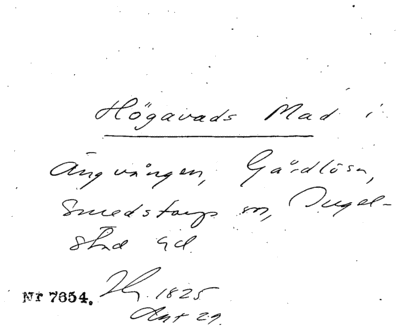 Högavads Mad i
Ängvången, Gårdlösa,
Smedstorps sn, Ingel-
stad hd
Nr 7654. Hy. 1825
Akt 29.